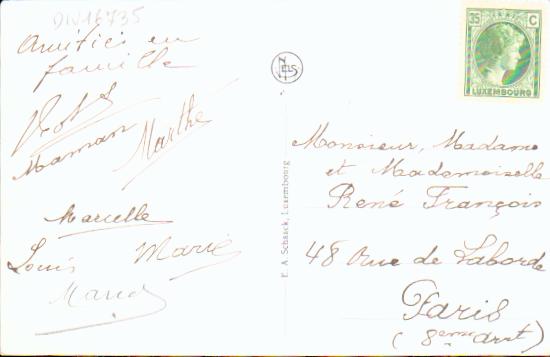 DIV16735
Amitiés en
famille
Maman
Marthe
Marcelle
Louis
Marie
NELS
E. A. Schaack, Luxembourg
35 C
LUXEMBOURG
Monsieur, Madame
et Mademoiselle
René François
48 Rue de Laborde
Paris
(8ème arrt)